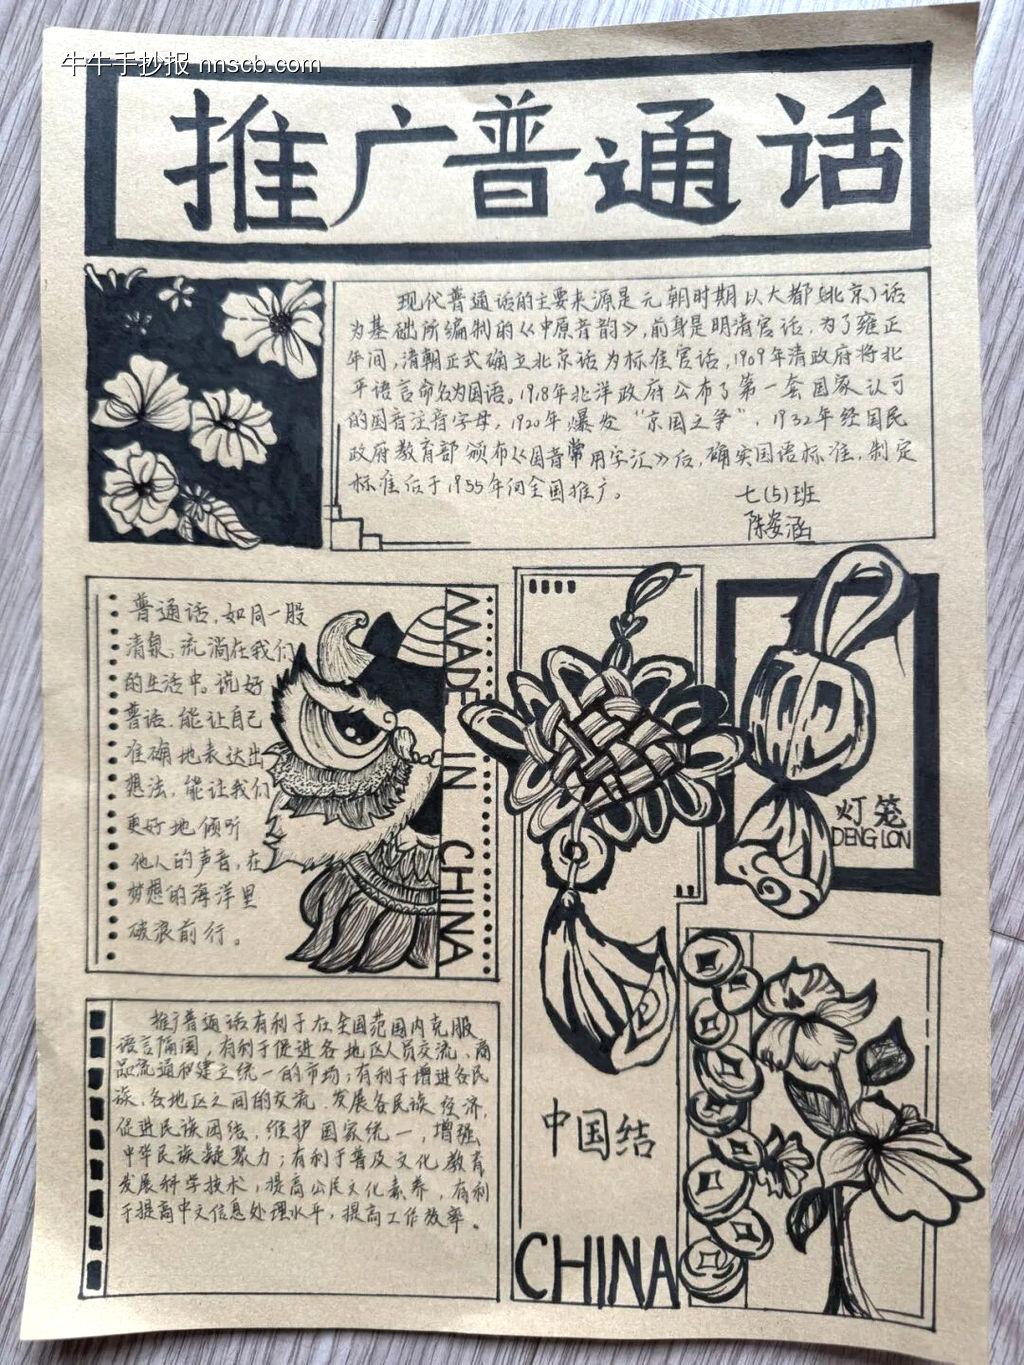 牛牛手抄报 nnscb.com
推广普通话
现代普通话的主要来源是元朝时期以大都(北京)话
为基础所编制的《中原音韵》,前身是明清官话,为了雍正
年间,清朝正式确立北京话为标准官话,1909年清政府将北
平语言命名为国语。1918年北洋政府公布了第一套国家认可
的国音注音字母,1920年爆发“京国之争”,1932年经国民
政府教育部颁布《国音常用字汇》后,确实国语标准,制定
标准后于1955年向全国推广。
七(5)班
陈姿涵
普通话,如同一股
清泉,流淌在我们
的生活中。说好
普话,能让自己
准确地表达出
想法,能让我们
更好地倾听
他人的声音,在
梦想的海洋里
破浪前行。
MADE IN CHINA
灯笼
DENG LON
推广普通话有利于在全国范围内克服
语言隔阂,有利于促进各地区人员交流、商
品流通和建立统一的市场;有利于增进各民
族、各地区之间的交流,发展各民族经济,
促进民族团结,维护国家统一,增强
中华民族凝聚力;有利于普及文化教育
发展科学技术,提高公民文化素养,有利
于提高中文信息处理水平,提高工作效率。
中国结
CHINA